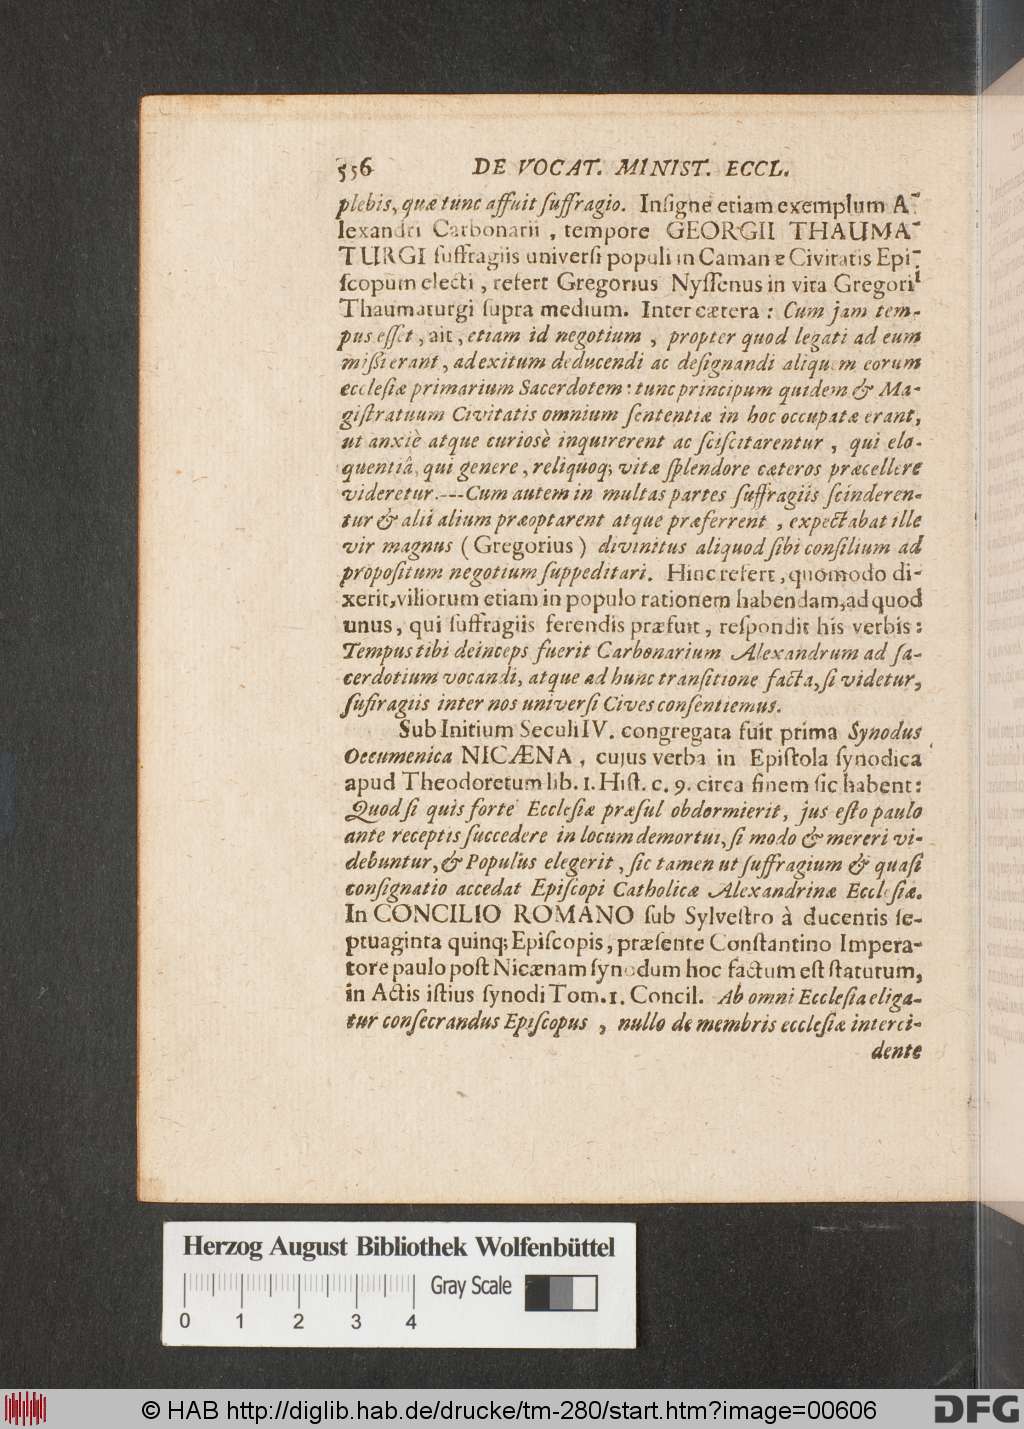 556 DE VOCAT. MINIST. ECCL.
plebis, quæ tunc affuit ſuffragio. Inſigne etiam exemplum A-
lexandri Carbonarii, tempore GEORGII THAUMA-
TURGI ſuffragiis univerſi populi in Camanæ Civitatis Epi-
ſcopum electi, refert Gregorius Nyſſenus in vita Gregorii
Thaumaturgi ſupra medium. Inter cætera: Cum jam tem-
pus eſſet, ait, etiam id negotium, propter quod legati ad eum
miſſi erant, ad exitum deducendi ac deſignandi aliquem eorum
eccleſiæ primarium Sacerdotem: tunc principum quidem & Ma-
giſtratuum Civitatis omnium ſententiæ in hoc occupatæ erant,
ut anxiè atque curiosè inquirerent ac ſciſcitarentur, qui elo-
quentiâ, qui genere, reliquoq; vitæ ſplendore cæteros præcellere
videretur.---Cum autem in multas partes ſuffragiis ſcinderen-
tur & alii alium præoptarent atque præferrent, expectabat ille
vir magnus (Gregorius) divinitus aliquod ſibi conſilium ad
propoſitum negotium ſuppeditari. Hinc refert, quomodo di-
xerit, viliorum etiam in populo rationem habendam, ad quod
unus, qui ſuffragiis ferendis præfuit, reſpondit his verbis:
Tempus tibi deinceps fuerit Carbonarium Alexandrum ad ſa-
cerdotium vocandi, atque ad hunc tranſitione facta, ſi videtur,
ſufiragiis inter nos univerſi Cives conſentiemus.
Sub Initium Seculi IV. congregata fuit prima Synodus
Oecumenica NICÆNA, cujus verba in Epiſtola ſynodica
apud Theodoretum lib. 1. Hiſt. c. 9. circa finem ſic habent:
Quod ſi quis forte Eccleſiæ præſul obdormierit, jus eſto paulo
ante receptis ſuccedere in locum demortui, ſi modo & mereri vi-
debuntur, & Populus elegerit, ſic tamen ut ſuffragium & quaſi
conſignatio accedat Epiſcopi Catholicæ Alexandrinæ Eccleſiæ.
In CONCILIO ROMANO ſub Sylveſtro à ducentis ſe-
ptuaginta quinq; Epiſcopis, præſente Conſtantino Impera-
tore paulo poſt Nicænam ſynodum hoc factum eſt ſtatutum,
in Actis iſtius ſynodi Tom. 1. Concil. Ab omni Eccleſia eliga-
tur conſecrandus Epiſcopus, nullo de membris eccleſiæ interci-
dente
Herzog August Bibliothek Wolfenbüttel
Gray Scale
0 1 2 3 4
© HAB http://diglib.hab.de/drucke/tm-280/start.htm?image=00606
DFG